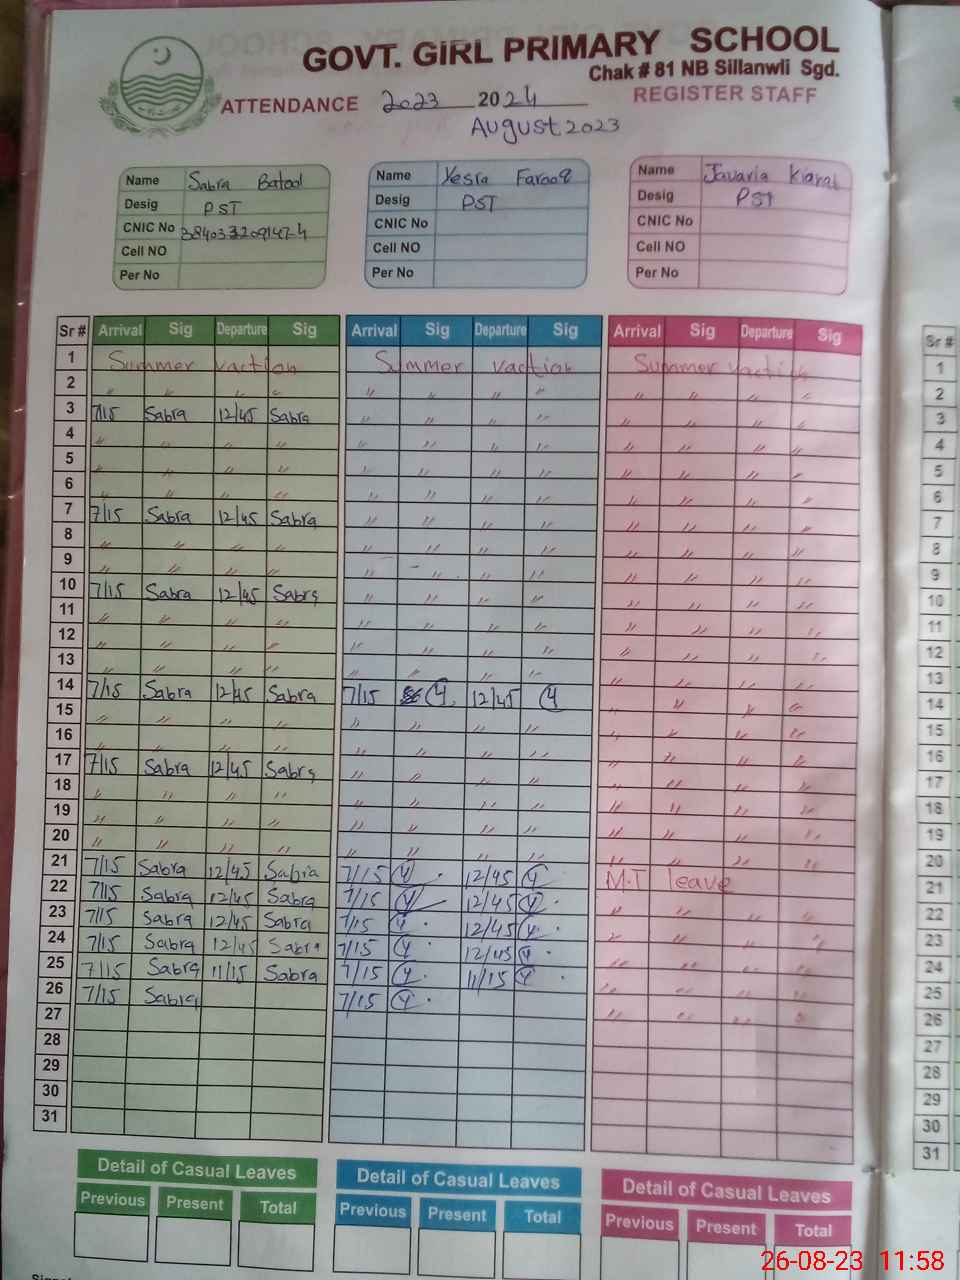 GOVT. GIRL PRIMARY SCHOOL
Chak # 81 NB Sillanwli Sgd.
ATTENDANCE 2023 2024 REGISTER STAFF
August 2023
Name Sabra Batool Name Yesra Farooq Name Javaria Kiaral
Desig PST Desig PST Desig PST
CNIC No CNIC No CNIC No
Cell NO Cell NO Cell NO
Per No Per No Per No
Sr # Arrival Sig Departure Sig Arrival Sig Departure Sig Arrival Sig Departure Sig Sr #
1 Summer vaction Summer vaction Summer vaction 1
2 " " " " " " " " " " " " 2
3 7/15 Sabra 12/45 Sabra " " " " " " " " 3
4 " " " " " " " " " " " " 4
5 " " " " " " " " " " " " 5
6 " " " " " " " " " " " " 6
7 7/15 Sabra 12/45 Sabra " " " " " " " " 7
8 " " " " " " " " " " " " 8
9 " " " " " " " " " " " " 9
10 7/15 Sabra 12/45 Sabra " " " " " " " " 10
11 " " " " " " " " " " " " 11
12 " " " " " " " " " " " " 12
13 " " " " " " " " " " " " 13
14 7/15 Sabra 12/45 Sabra 7/15 Y 12/45 Y " " " " 14
15 " " " " " " " " " " " " 15
16 " " " " " " " " " " " " 16
17 7/15 Sabra 12/45 Sabra " " " " " " " " 17
18 " " " " " " " " " " " " 18
19 " " " " " " " " " " " " 19
20 " " " " " " " " " " " " 20
21 7/15 Sabra 12/45 Sabra 7/15 Y 12/45 Y M.T leave 21
22 7/15 Sabra 12/45 Sabra 7/15 Y 12/45 Y " " " " 22
23 7/15 Sabra 12/45 Sabra 7/15 Y 12/45 Y " " " " 23
24 7/15 Sabra 12/45 Sabra 7/15 Y 12/45 Y " " " " 24
25 7/15 Sabra 11/15 Sabra 7/15 Y 11/15 Y " " " " 25
26 7/15 Sabra 7/15 Y " " " " 26
27 27
28 28
29 29
30 30
31 31
Detail of Casual Leaves Detail of Casual Leaves Detail of Casual Leaves
Previous Present Total Previous Present Total Previous Present Total
26-08-23 11:58